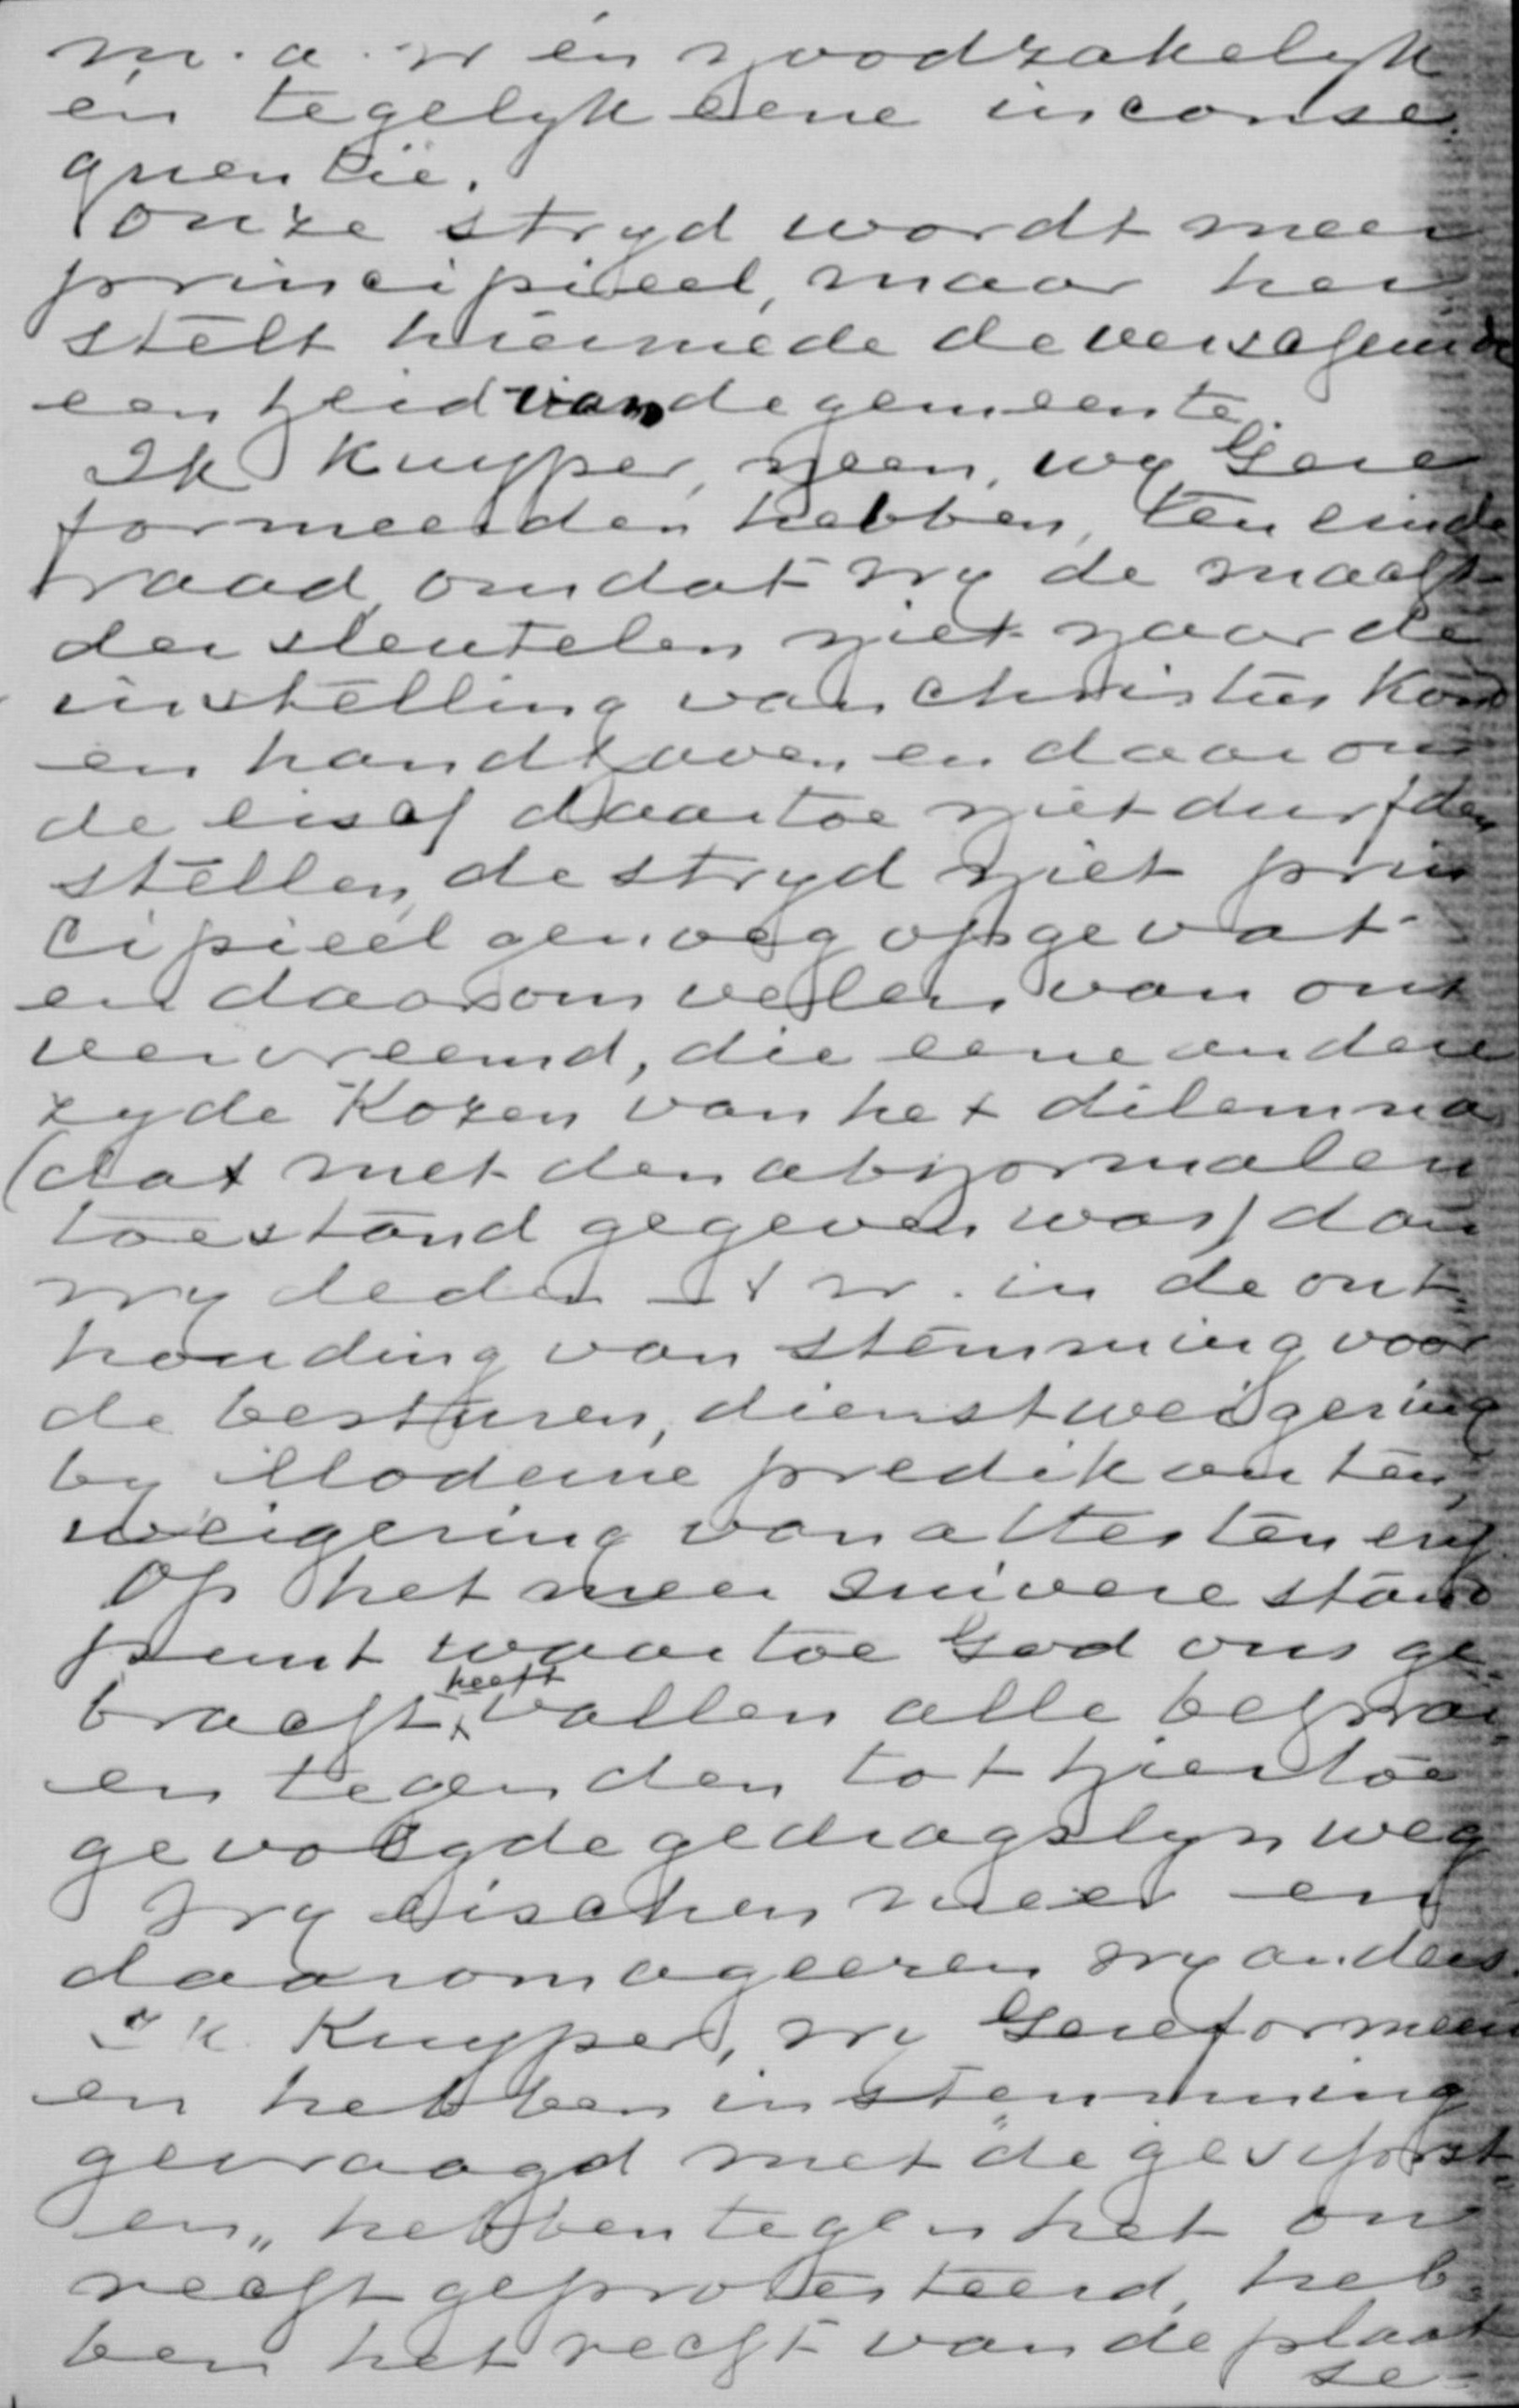 m. a. w én noodzakelyk
én tegelyk eene inconse
quentie.
onze stryd wordt meer
principieel, maar her
stelt hiermede de verscheurde
eenheid van de gemeente.
Ik Kuyper, neen, wy Gere
formeerden hebben, ten einde
raad, omdat wy de macht
der sleutelen niet naar de
instelling van Christus kond
en handhaven en daarom
de eisch daartoe niet durfden
stellen, de stryd niet prin
cipieel genoeg opgevat
en daarom velen van ons
vervreemd, die eene andere
zyde kozen van het dilemma
(dat met den abnormalen
toestand gegeven was) dan
wy deden _ t w. in de ont
houding van stemming voor
de besturen, dienstweigering
by Moderne predikanten,
weigering van attesten enz.
Op het meer zuivere stand
punt waartoe God ons ge
bracht heeft vallen alle bezwar
en tegen den tot hiertoe
gevolgde gedragslyn weg
Wy eischen meer en
daarom ageeren wy anders.
Ik Kuyper, wy Gereformeerd
en hebben instemming
gevraagd met "de
en" hebben tegen het on
recht geprotesteerd, heb
ben het recht van de plaat
se-